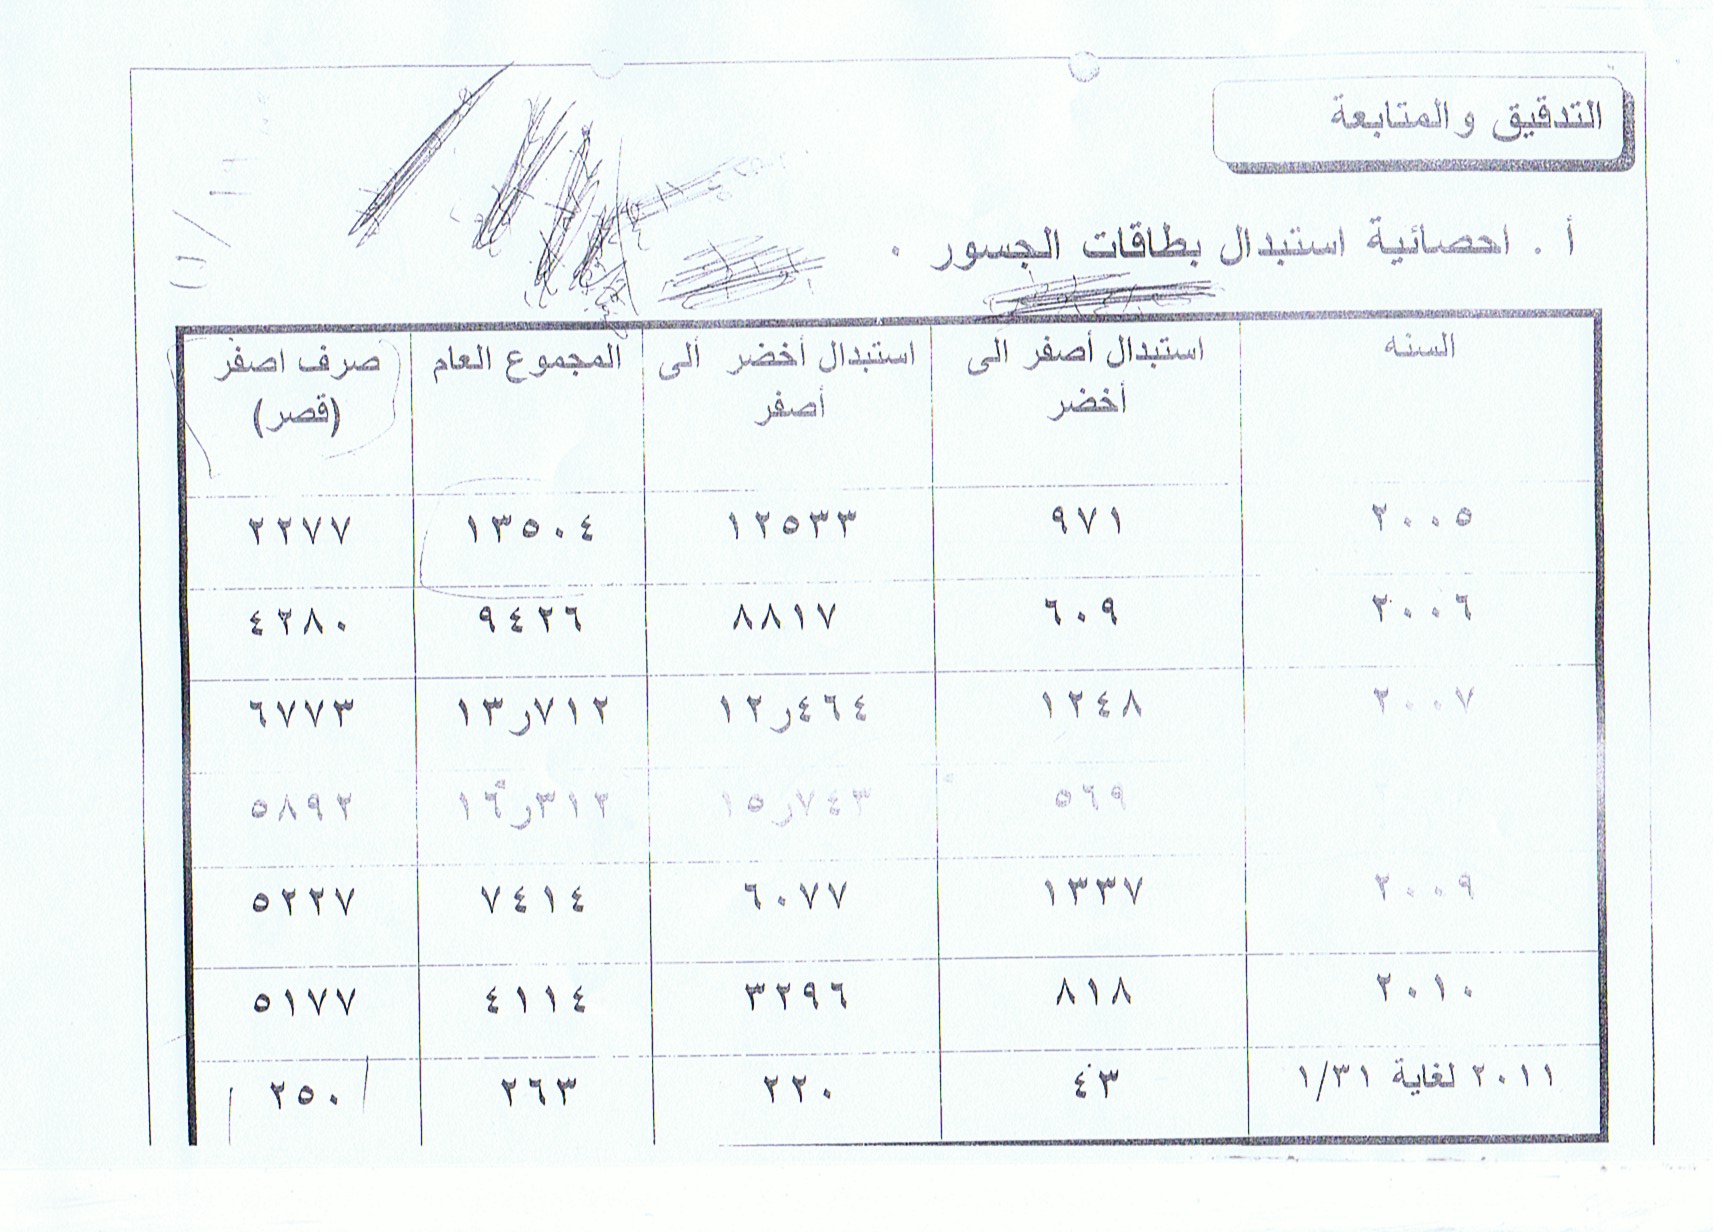 التدقيق والمتابعة
أ . احصائية استبدال بطاقات الجسور .
السنه | استبدال أصفر الى أخضر | استبدال أخضر الى أصفر | المجموع العام | صرف اصفر (قصر)
٢٠٠٥ | ٩٧١ | ١٢٥٣٣ | ١٣٥٠٤ | ٢٢٧٧
٢٠٠٦ | ٦٠٩ | ٨٨١٧ | ٩٤٢٦ | ٤٢٨٠
٢٠٠٧ | ١٢٤٨ | ١٢ر٤٦٤ | ١٣ر٧١٢ | ٦٧٧٣
٥٦٩ | ١٥ر٧٤٣ | ١٦ر٣١٢ | ٥٨٩٢
٢٠٠٩ | ١٣٣٧ | ٦٠٧٧ | ٧٤١٤ | ٥٢٢٧
٢٠١٠ | ٨١٨ | ٣٢٩٦ | ٤١١٤ | ٥١٧٧
٢٠١١ لغاية ١/٣١ | ٤٣ | ٢٢٠ | ٢٦٣ | ٢٥٠